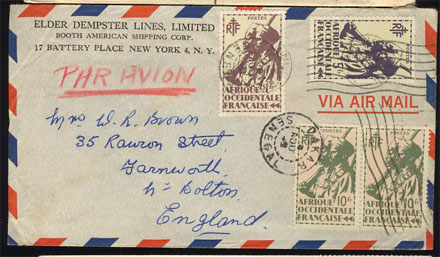 ELDER DEMPSTER LINES, LIMITED
BOOTH AMERICAN SHIPPING CORP.
17 BATTERY PLACE NEW YORK 4, N. Y.
PAR AVION
VIA AIR MAIL
Mrs W. R. Brown
35 Rawson Street,
Farnworth,
Nr Bolton,
England.
POSTES
RF
AFRIQUE
OCCIDENTALE
FRANÇAISE
RF
AFRIQUE
OCCIDENTALE
FRANÇAISE
DAKAR
SENEGAL
RF
10F
AFRIQUE
OCCIDENTALE
FRANÇAISE
10F
AFRIQUE
OCCIDENTALE
FRANÇAISE